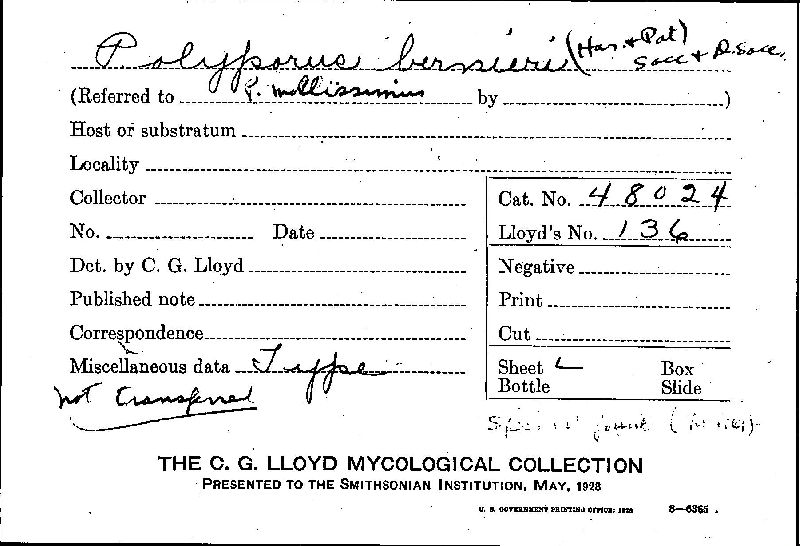 Polyporus bernieri (Har. + Pat)
Sacc + D. Sacc.
(Referred to P. mollissimus by )
Host or substratum
Locality
Collector
Cat. No. 48024
No. Date
Lloyd's No. 136
Det. by C. G. Lloyd
Negative
Published note
Print
Correspondence
Cut
Miscellaneous data Type
Sheet Box
Bottle Slide
not transferred
found
THE C. G. LLOYD MYCOLOGICAL COLLECTION
PRESENTED TO THE SMITHSONIAN INSTITUTION, MAY, 1928
U. S. GOVERNMENT PRINTING OFFICE: 1928 8—6365